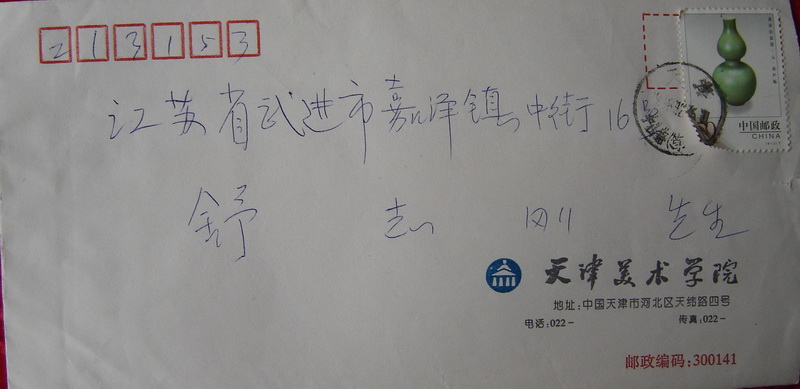 213153
中国邮政
CHINA
江苏省武进市嘉泽镇中街16号
舒志刚 先生
天津美术学院
地址:中国天津市河北区天纬路四号
电话:022- 传真:022-
邮政编码:300141